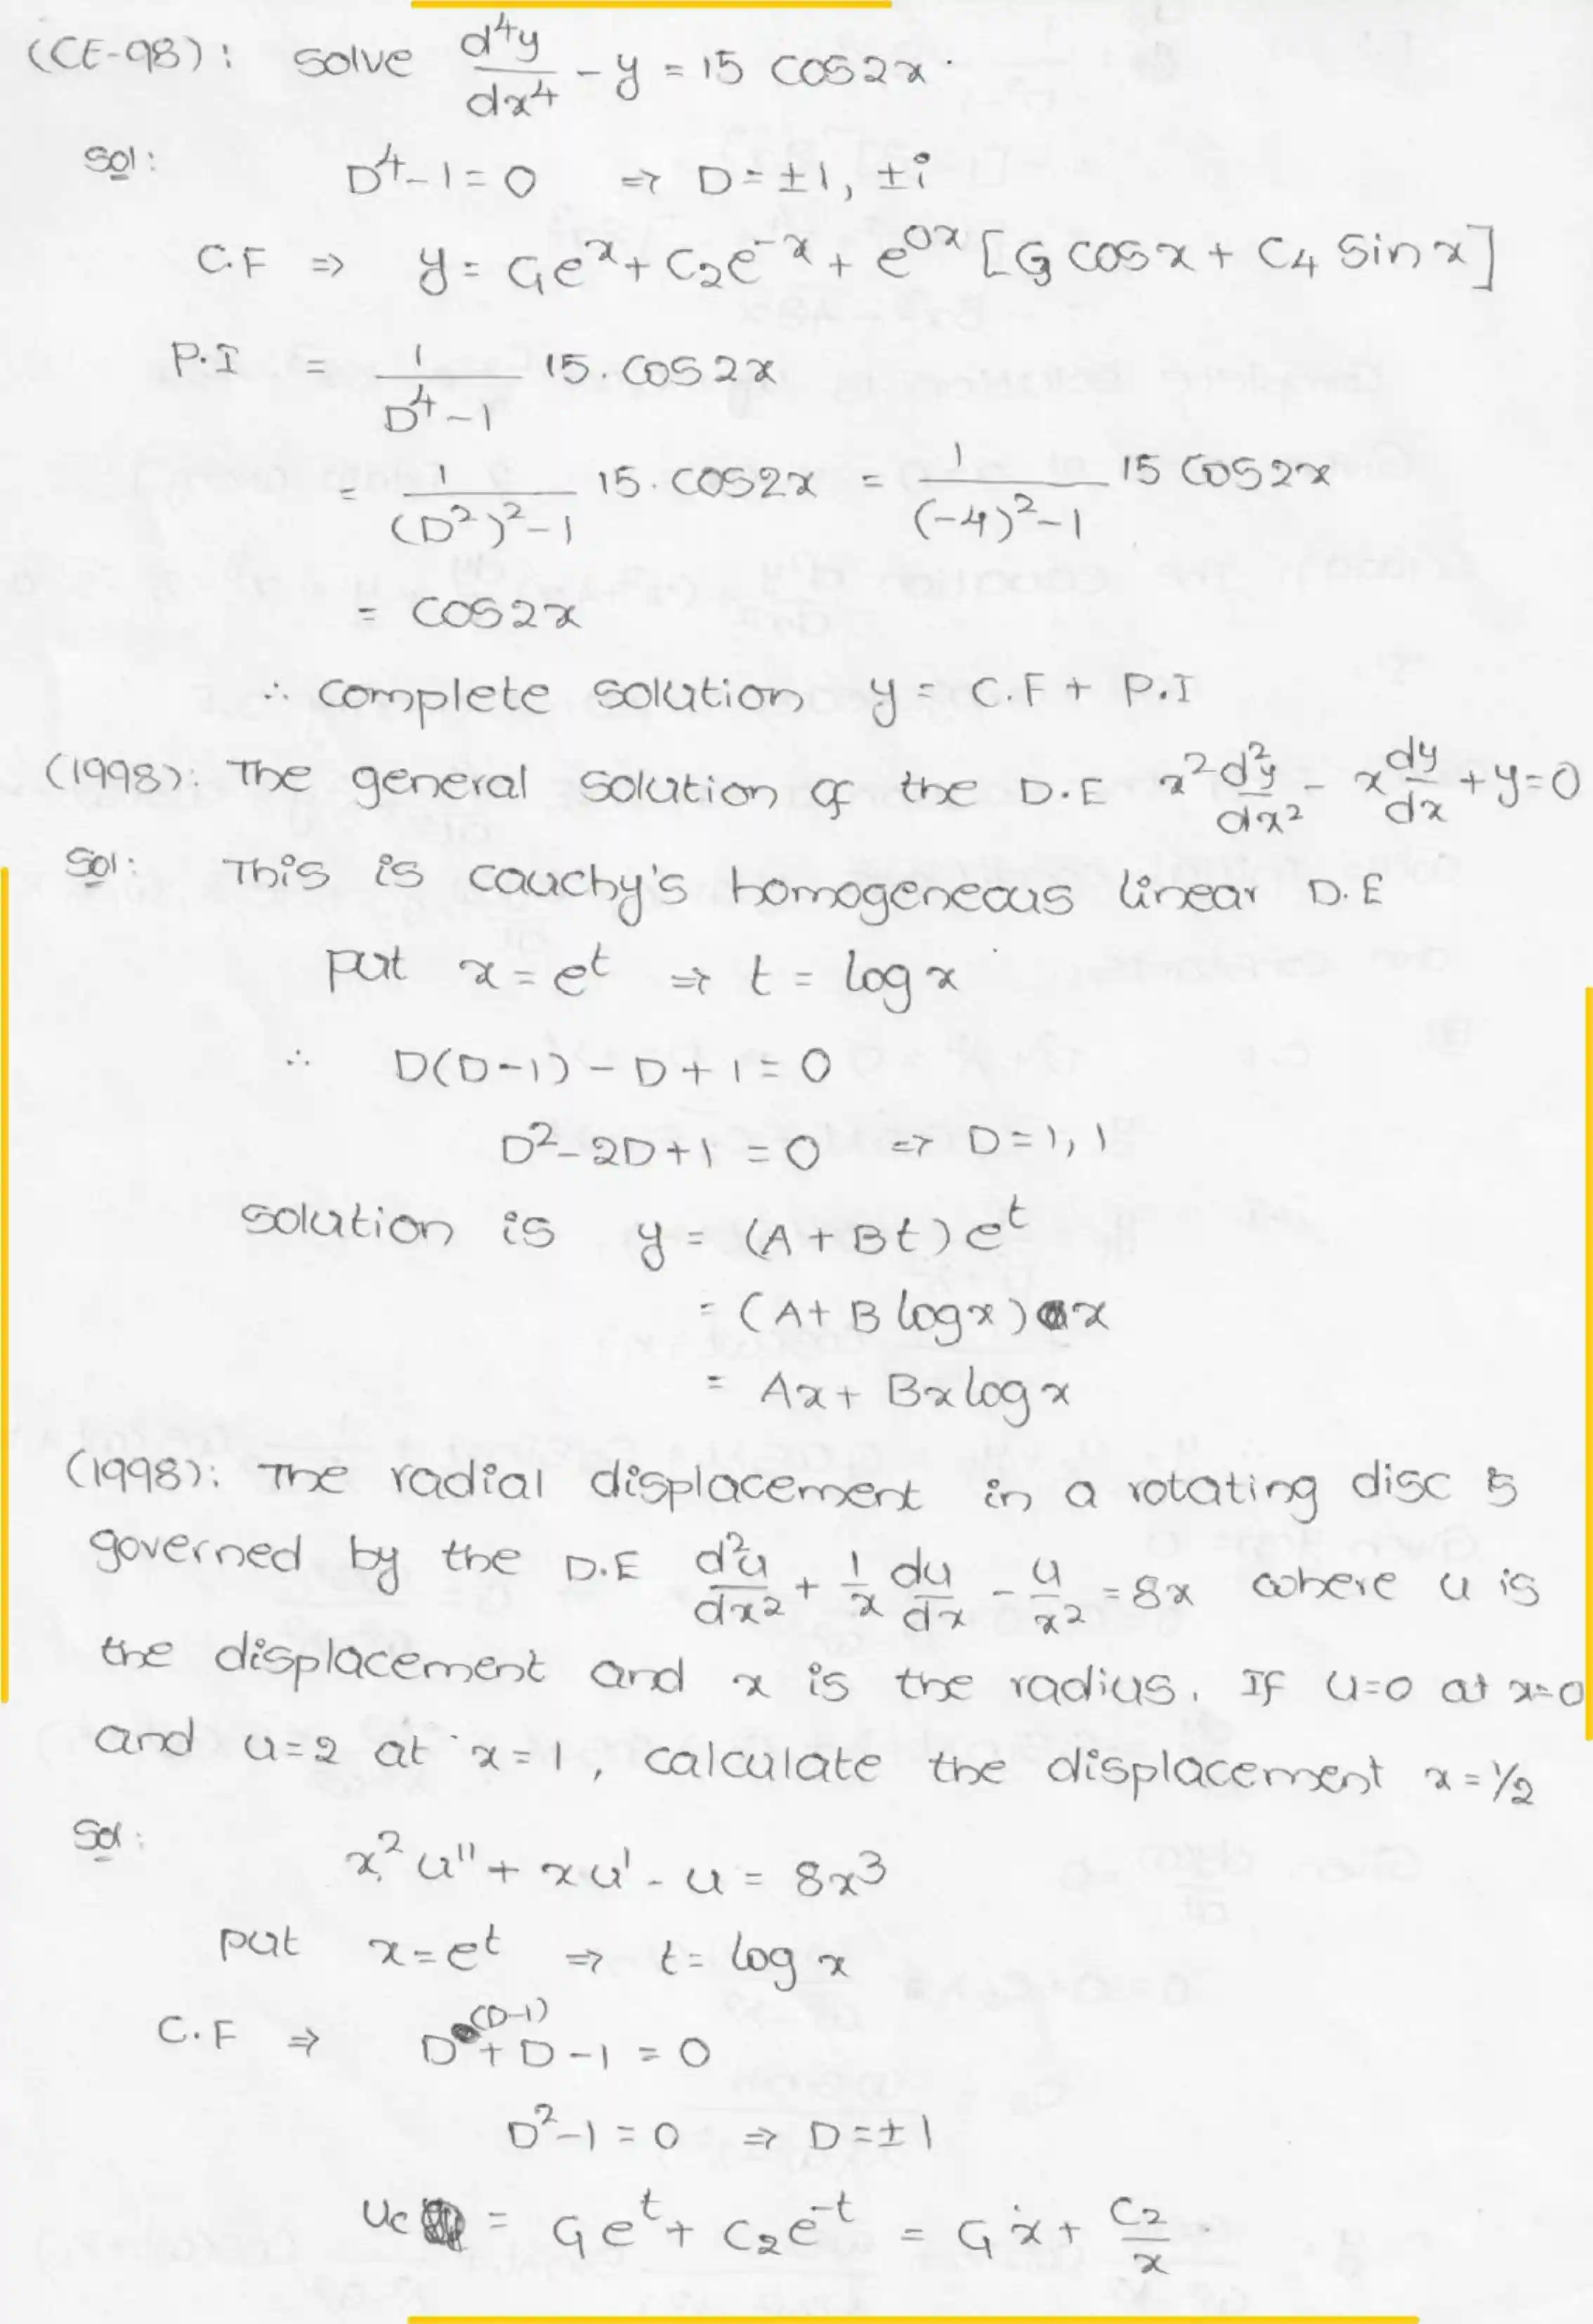 (CE-98): Solve d⁴y/dx⁴ - y = 15 cos2x.
Sol: D⁴-1=0 ⇒ D=±1, ±i
C.F ⇒ y = C₁eˣ + C₂e⁻ˣ + e⁰ˣ [C₃ cosx + C₄ Sinx]
P.I = 1/(D⁴-1) 15. cos2x
= 1/((D²)²-1) 15. cos2x = 1/((-4)²-1) 15 cos2x
= cos2x
∴ complete solution y = C.F + P.I
(1998): The general solution of the D.E x² d²y/dx² - x dy/dx + y=0
Sol: This is cauchy's homogeneous linear D.E
put x = eᵗ ⇒ t = log x
∴ D(D-1) - D + 1 = 0
D² - 2D + 1 = 0 ⇒ D = 1, 1
solution is y = (A + Bt) eᵗ
= (A + B log x) x
= Ax + Bx log x
(1998): The radial displacement in a rotating disc is
governed by the D.E d²u/dx² + 1/x du/dx - u/x² = 8x where u is
the displacement and x is the radius. If u=0 at x=0
and u=2 at x=1, calculate the displacement x=½
Sol: x² u'' + x u' - u = 8x³
put x = eᵗ ⇒ t = log x
C.F ⇒ D(D-1) + D - 1 = 0
D² - 1 = 0 ⇒ D = ±1
u_c = C₁eᵗ + C₂e⁻ᵗ = C₁x + C₂/x